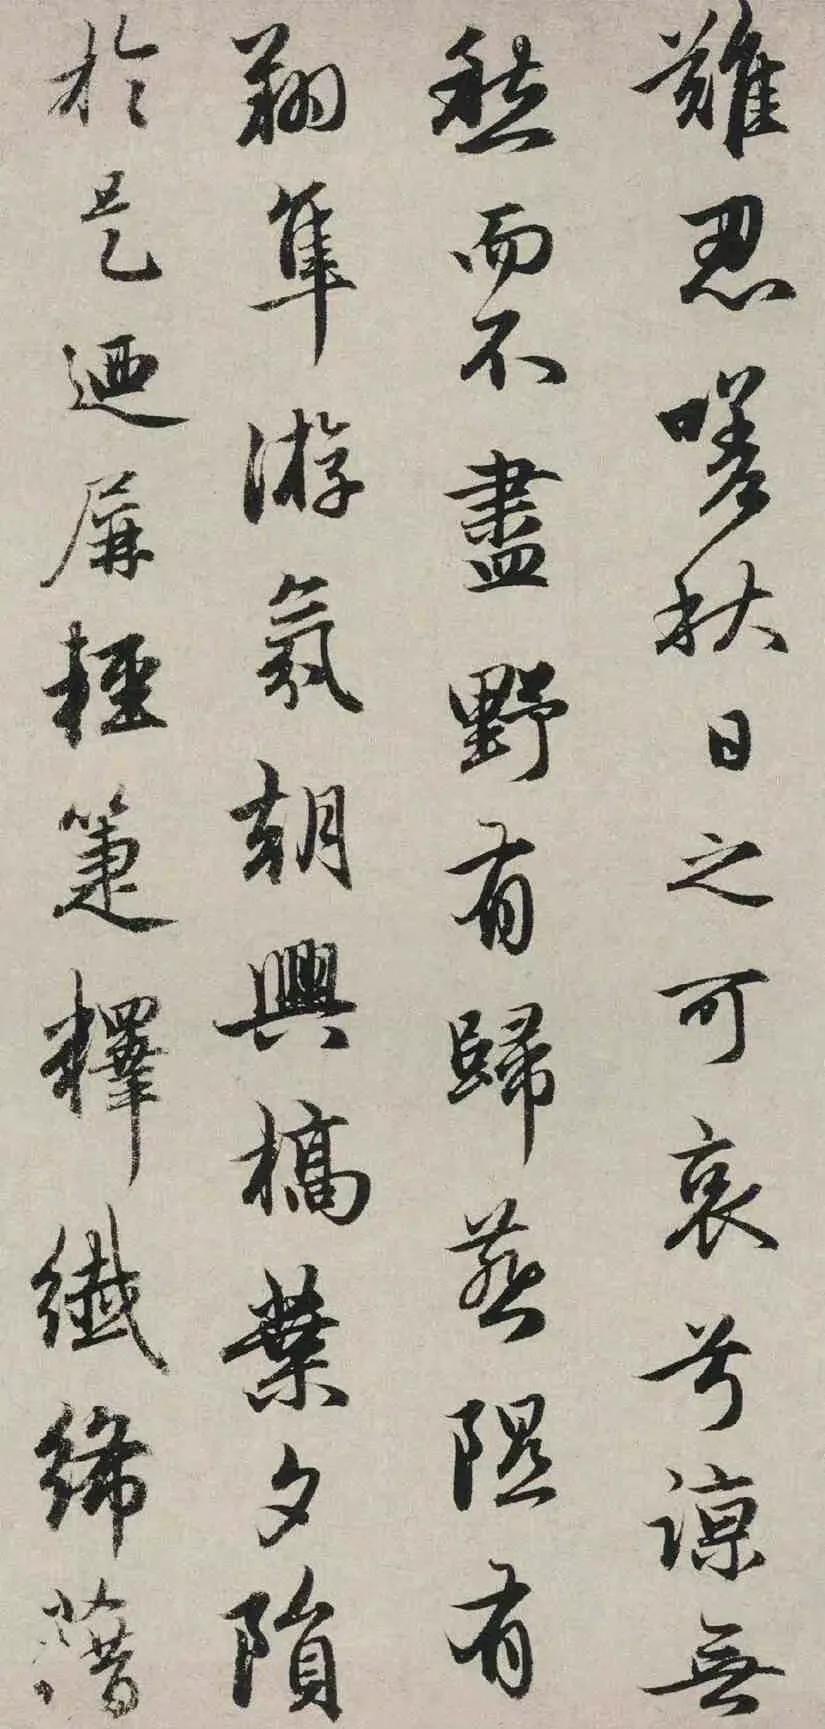 難忍嗟秋日之可哀兮諒無
愁而不盡野有歸燕隰有
翔隼游氛朝興槁葉夕隕
於是迺屏輕箑釋纖絺藉